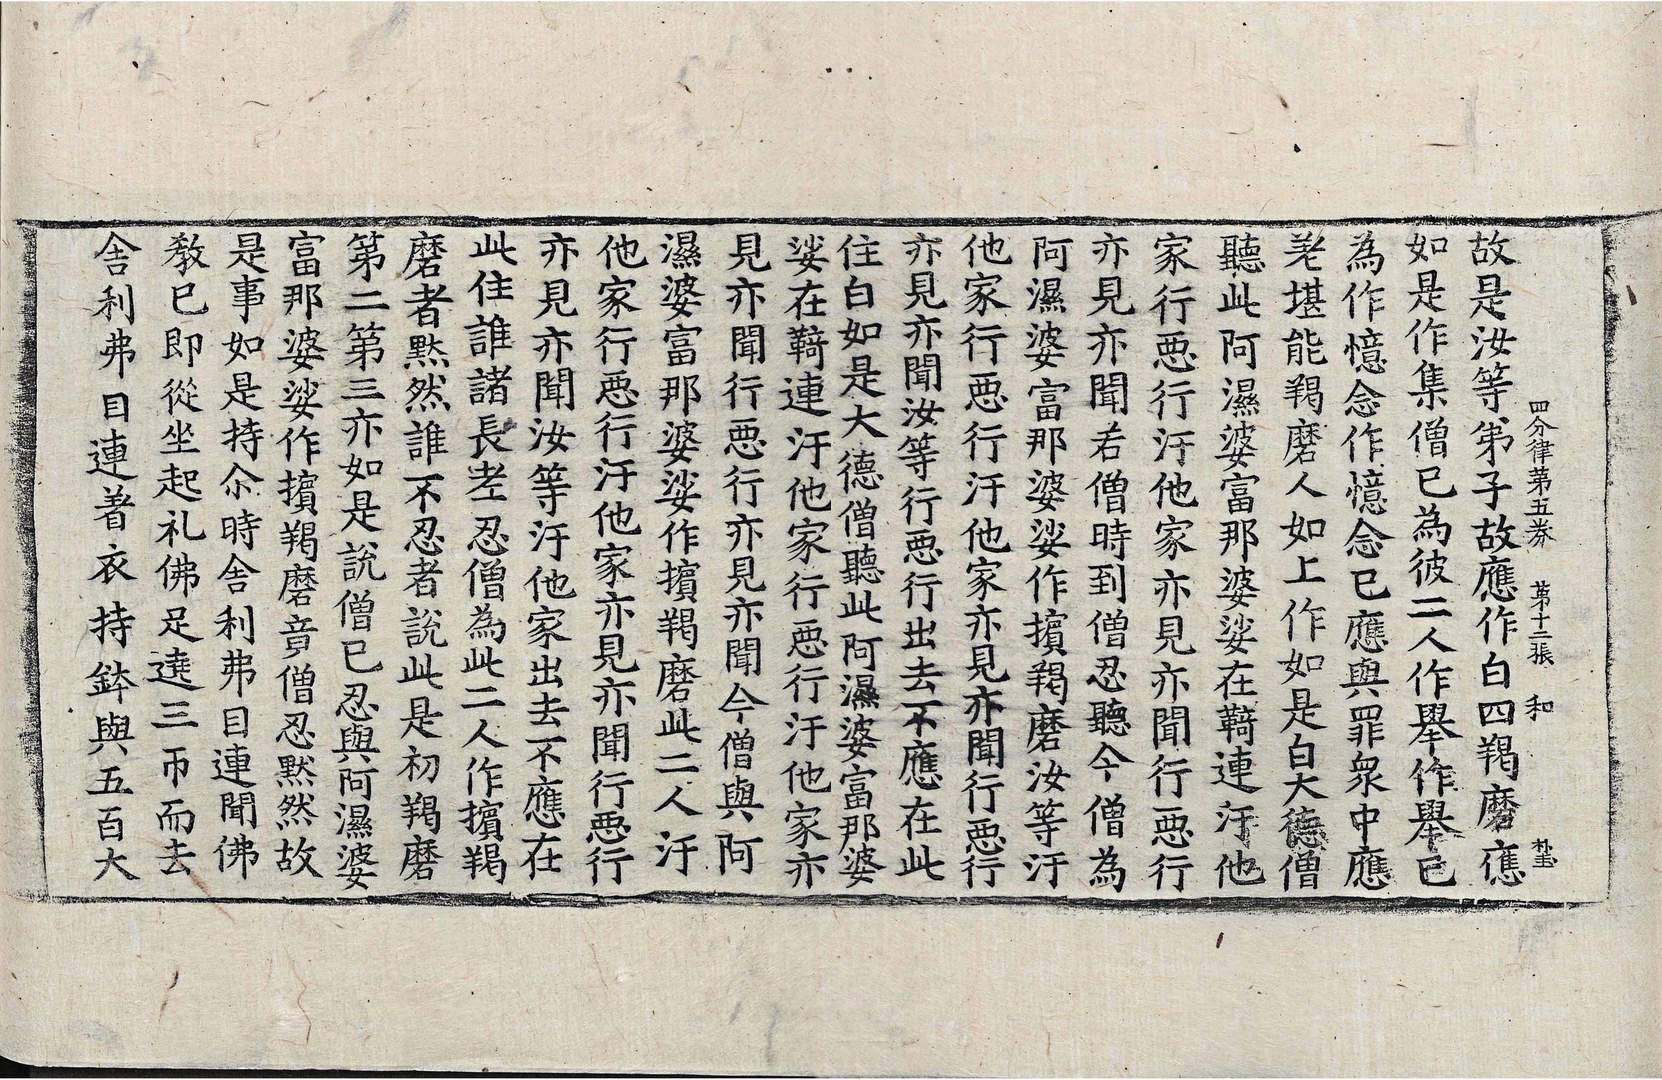 四分律第五卷 第十二張 和
故是汝等弟子故應作白四羯磨應
如是作集僧已為彼二人作舉作舉已
為作憶念作憶念已應與罪衆中應
差堪能羯磨人如上作如是白大德僧
聽此阿濕婆富那婆娑在鞞連汙他
家行惡行汙他家亦見亦聞行惡行
亦見亦聞若僧時到僧忍聽今僧為
阿濕婆富那婆娑作擯羯磨汝等汙
他家行惡行汙他家亦見亦聞行惡行
亦見亦聞汝等行惡行出去不應在此
住白如是大德僧聽此阿濕婆富那婆
娑在鞞連汙他家行惡行汙他家亦
見亦聞行惡行亦見亦聞今僧與阿
濕婆富那婆娑作擯羯磨此二人汙
他家行惡行汙他家亦見亦聞行惡行
亦見亦聞汝等汙他家出去不應在
此住誰諸長老忍僧為此二人作擯羯
磨者黙然誰不忍者說此是初羯磨
第二第三亦如是說僧已忍與阿濕婆
富那婆娑作擯羯磨竟僧忍黙然故
是事如是持尒時舍利弗目連聞佛
教已即從坐起礼佛足遶三帀而去
舍利弗目連著衣持鉢與五百大